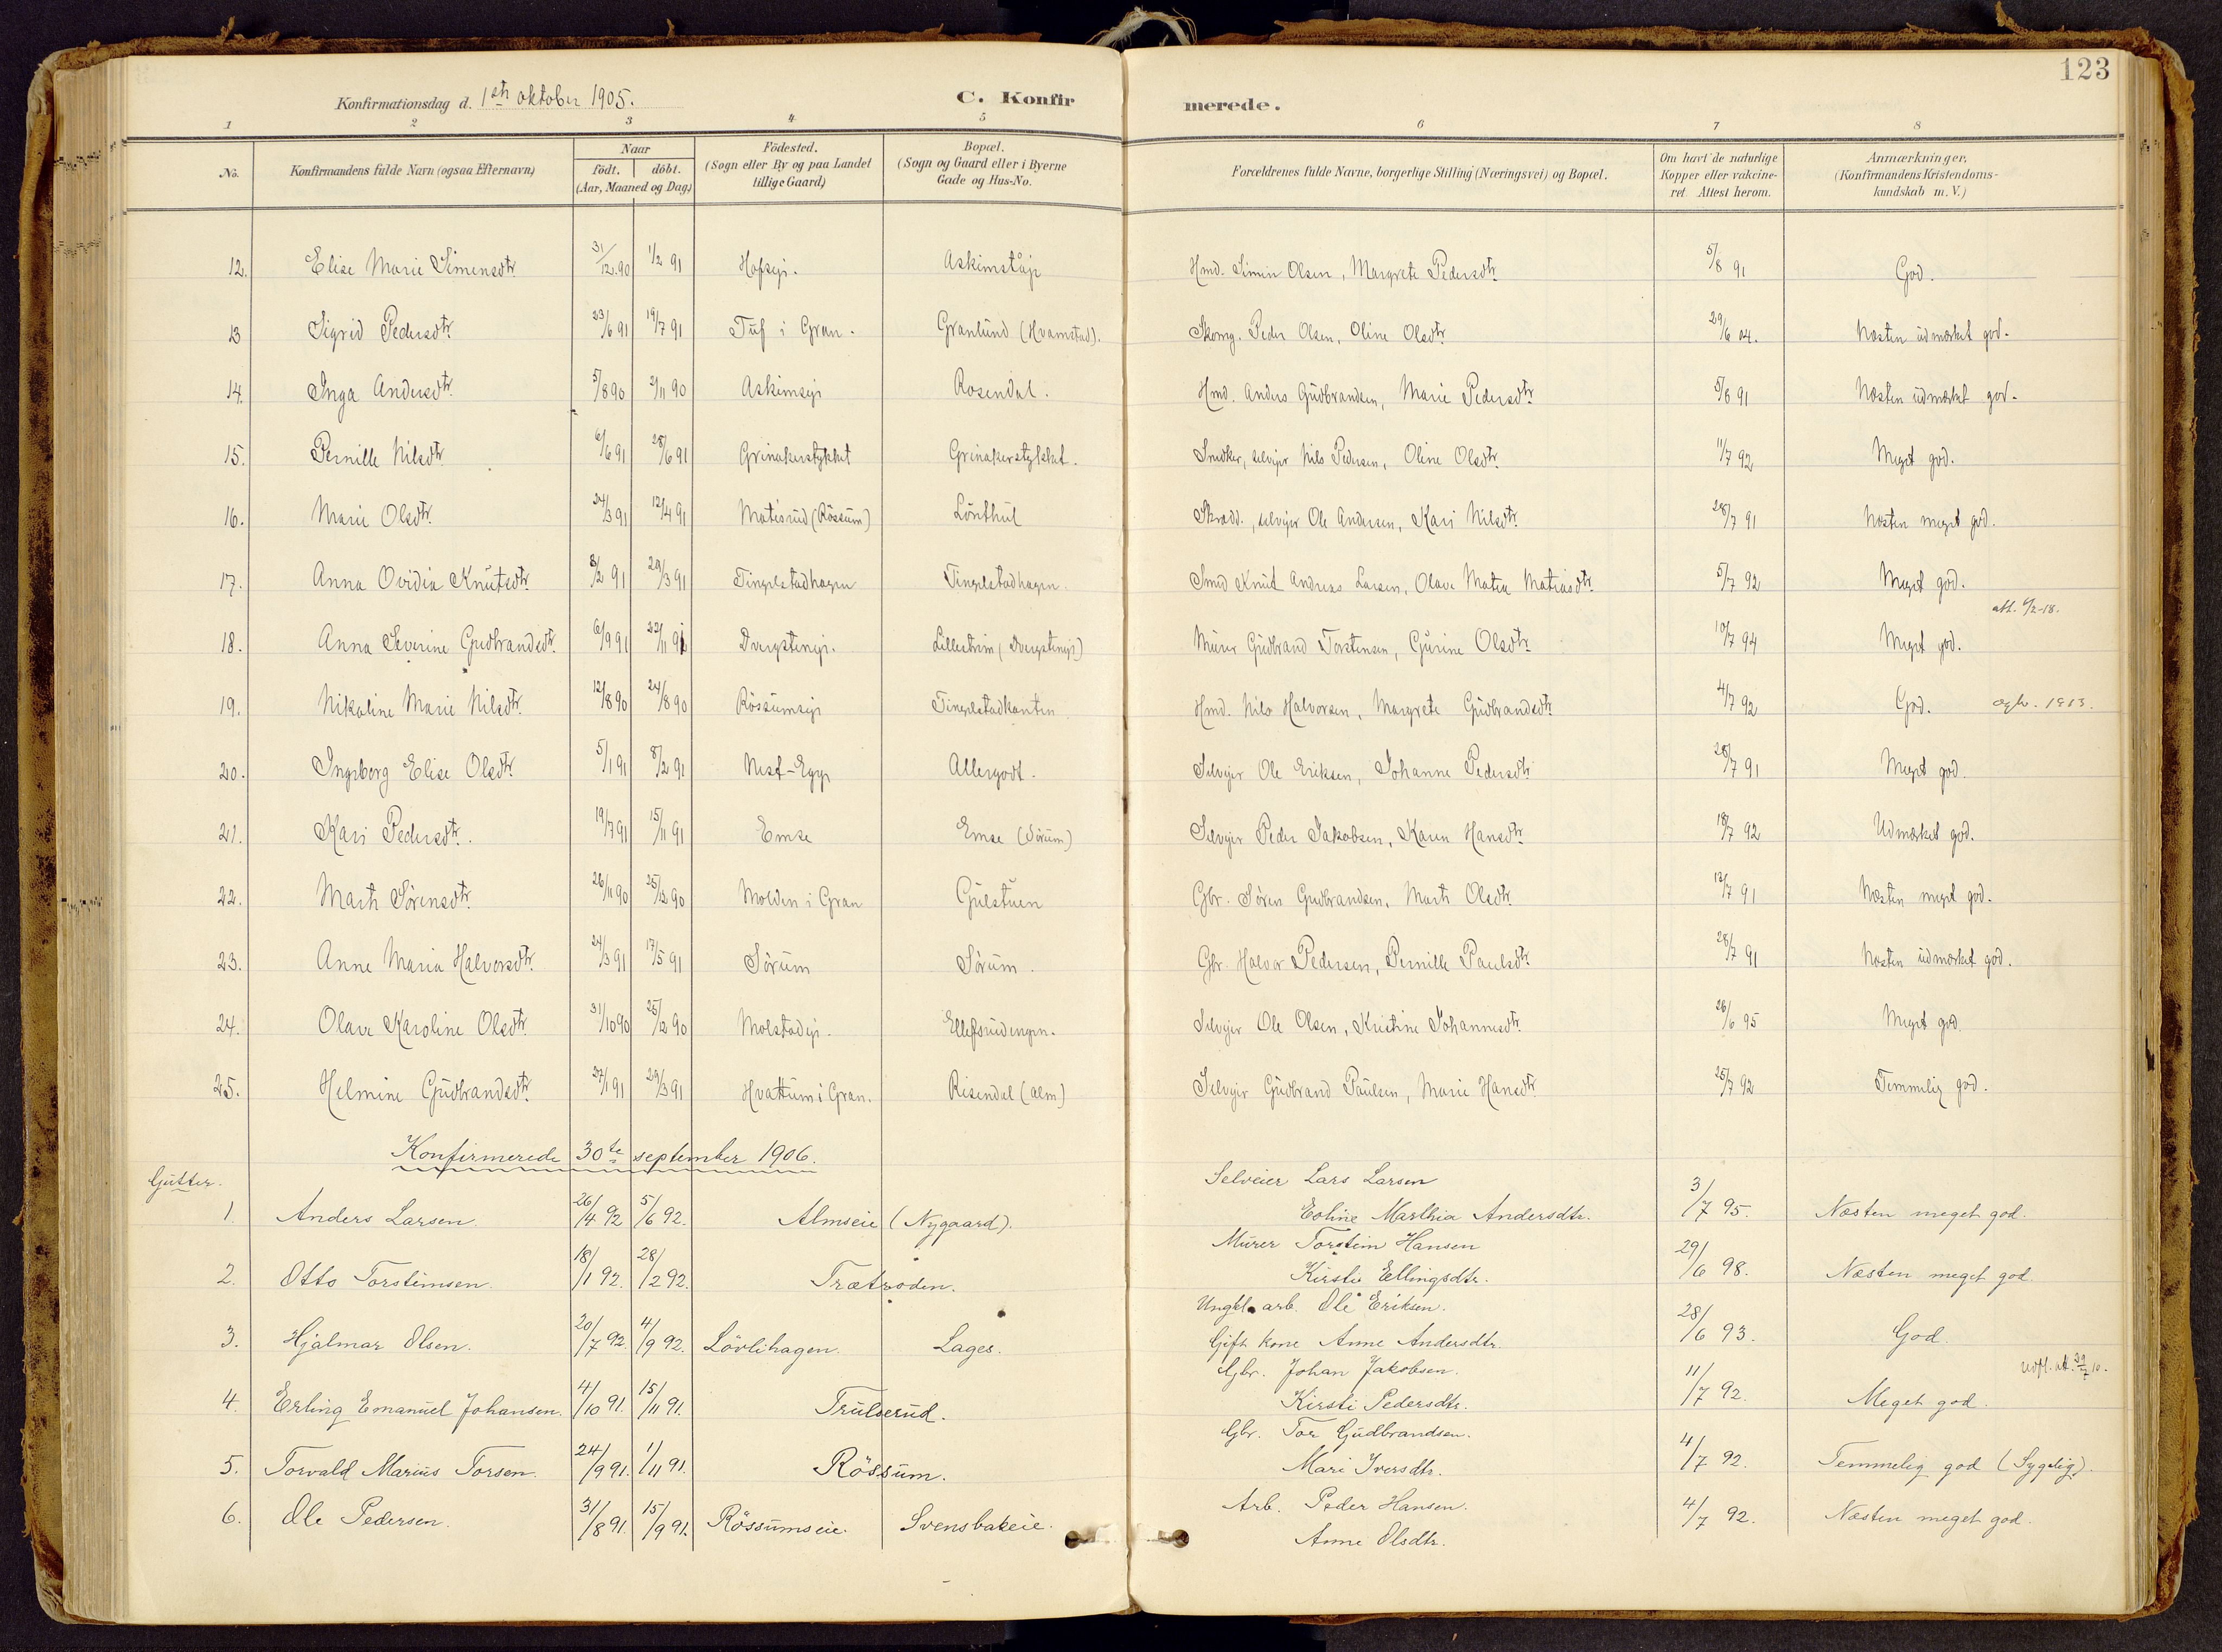 123
Konfirmationsdag d. 1ste oktober 1905. C. Konfirmerede.
1 2 3 4 5 6 7 8
No. Konfirmandens fulde Navn (ogsaa Efternavn) Naar født. døbt. (Aar, Maaned og Dag.) Fødested. (Sogn eller By og paa Landet tillige Gaard) Bopæl. (Sogn og Gaard eller i Byerne Gade og Hus-No. Forældrenes fulde Navne, borgerlige Stilling (Næringsvei) og Bopæl. Om havt de naturlige Kopper eller vakcineret. Attest herom. Anmærkninger. (Konfirmandens Kristendomskundskab m. V.)
12. Elise Marie Simensdtr. 31/12.90 1/2 91 Hofsejr. Askimstajr Hmd. Simen Olsen, Margrete Pedersdtr. 5/8 91 God.
13 Sigrid Pedersdtr. 23/6 91 19/7 91 Tuf i Gran. Granlund (Hvamstad). Skomg. Peder Olsen, Oline Olsdtr. 29/6 04. Næsten udmærket god.
14. Inga Andersdtr. 5/8 90 2/11 90 Askimsejr Rosendal. Hmd. Anders Gudbrandsen, Marie Pedersdtr. 5/6 91 Næsten udmærket god.
15. Pernille Nilsdtr. 6/6 91 28/6 91 Grinakerstykket Grinakerstykket. Snedker, selvejer Nils Pedersen, Oline Olsdtr. 11/7 92 Meget god.
16. Marie Olsdtr. 24/3 91 12/4 91 Matisrud (Røssum) Lønthul Skrædd., selvejer Ole Andersen, Kari Nilsdtr. 28/7 91 Næsten meget god.
17. Anna Ovidia Knutsdtr. 8/2 91 29/3 91 Tingelstadhagen Tingelstadhagen. Smed Knut Andreas Larsen, Olave Matea Matiasdtr. 5/7 92 Meget god.
att. 6/2-18.
18. Anna Severine Gudbrandsdtr. 6/9 91 22/11 91 Dvergstenejr. Lillestrøm (Dvergstenejr) Murer Gudbrand Torstensen, Gurine Olsdtr. 10/7 94 Meget god.
19. Nikoline Marie Nilsdtr. 12/8 90 24/8 90 Røssumsejr Tingelstadkanten Hmd. Nils Halvorsen, Margrete Gudbrandsdtr. 4/7 92 God. 1913.
20. Ingeborg Elise Olsdtr. 5/1 91 8/2 91 Nest-Egge Allergodt. Selvejer Ole Eriksen, Johanne Pedersdtr. 28/7 91 Meget god.
21. Kari Pedersdtr. 19/7 91 15/11 91 Emse Emse (Sørum) Selvejer Peder Jakobsen, Karen Hansdtr. 18/7 92 Udmærket god.
22. Marth Sørensdtr. 26/11 90 25/12 90 Molden i Gran Gulstuen Gbr. Søren Gudbrandsen, Marte Olsdtr. 12/7 91 Næsten meget god.
23. Anne Maria Halvorsdtr. 24/3 91 17/5 91 Sørum Sørum. Gbr. Halvor Pedersen, Pernille Paulsdtr. 28/7 91 Næsten udmærket god.
24. Olave Karoline Olsdtr. 31/10 90 25/12 90 Molstadejr. Ellefsrudengen. Selvejer Ole Olsen, Kristine Johannesdtr. 26/6 95 Meget god.
25. Helmine Gudbrandsdtr. 27/1 91 29/3 91 Hvattum i Gran. Risendal (alm.) Selvejer Gudbrand Paulsen, Marie Hansdtr. 25/7 92 Temmelig god.
Konfirmerede 30te september 1906.
Gutter.
1. Anders Larsen. 26/4 92 5/6 92. Almseie (Nygaard). Selveier Lars Larsen
Eoline Marthia Andersdtr. 3/7 95. Næsten meget god.
2. Otto Torsteinsen. 18/1 92. 28/2 92. Trætroden. Murer Torstein Hansen
Kirsti Ellingsdtr. 29/6 98. Næsten meget god.
3. Hjalmar Olsen. 20/7 92. 4/9 92. Lövlihagen. Lages. Ungkl. arb. Ole Eriksen.
Gift kone Anne Andersdtr. 28/6 93. God.
4. Erling Emanuel Johansen. 4/10 91. 15/11 91. Trulserud. Gbr. Johan Jakobsen.
Kirsti Pedersdtr. 11/7 92. Meget god. Udfl. att. 10.
5. Torvald Marius Torsen. 24/9 91. 1/11 91. Rössum. Gbr. Tor Gudbrandsen.
Mari Iversdtr. 4/7 92. Temmelig god (Sygelig).
6. Ole Pedersen. 31/8 91. 15/9 91. Rössumseie. Svensbakeie. Arb. Peder Hansen.
Anne Olsdtr. 4/7 92. Næsten meget god.